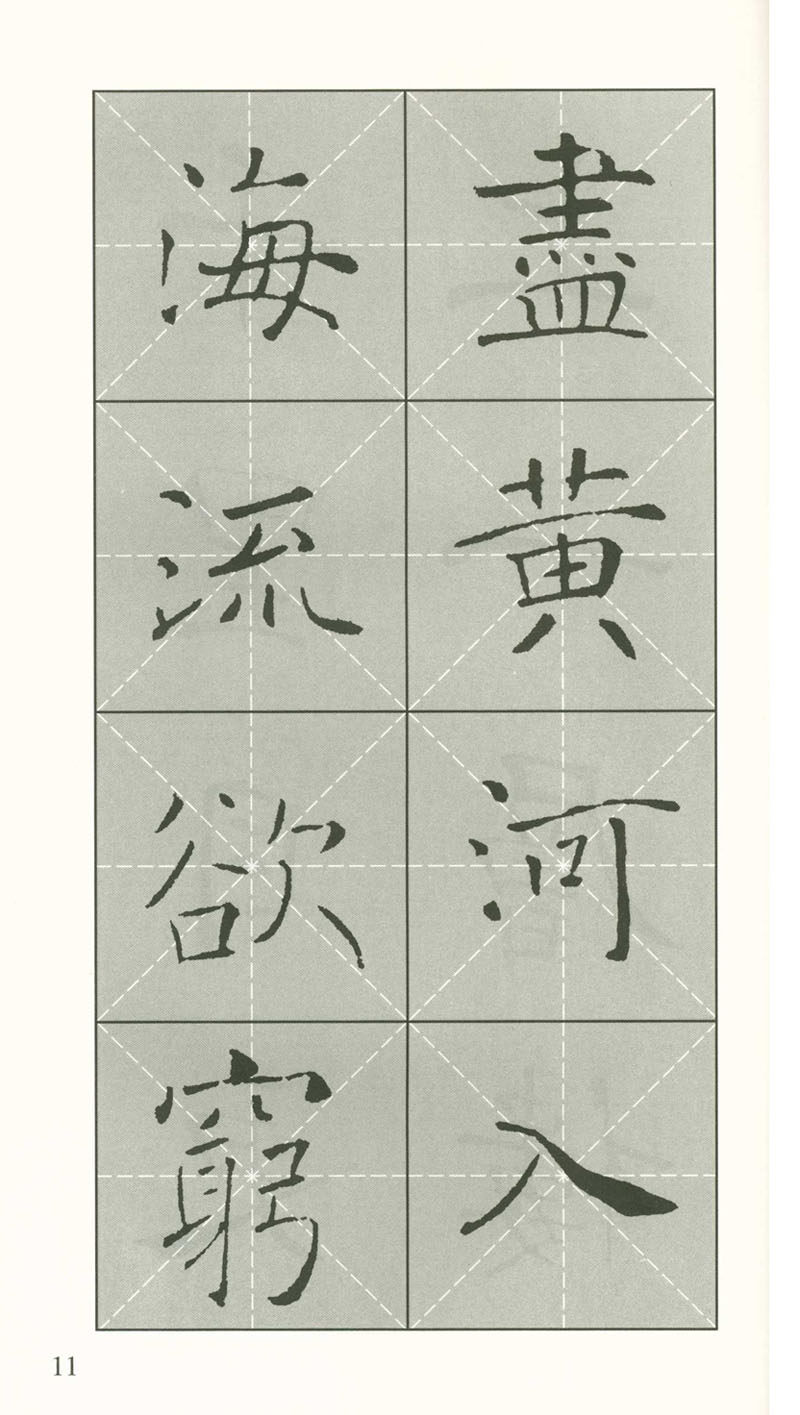 盡黄河入
海流欲窮
11